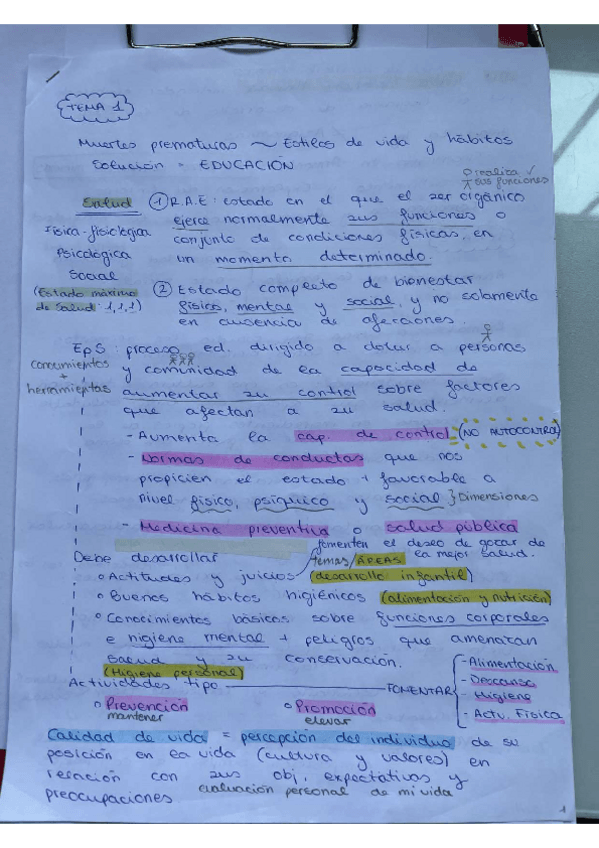 TEMA 1
Muertes prematuras ~ Estilos de vida y hábitos
Solución = EDUCACIÓN
realiza ✓
sus funciones
Salud ① R.A.E: estado en el que el ser orgánico
ejerce normalmente sus funciones o
Física-fisiológica conjunto de condiciones físicas, en
Psicológica un momento determinado.
Social
(Estado máximo ② Estado completo de bienestar
de salud: 1,1,1) físico, mental y social, y no solamente
en ausencia de afecciones.
EpS: proceso ed. dirigido a dotar a personas
conocimientos y comunidad de la capacidad de
+
herramientas aumentar su control sobre factores
que afectan a su salud.
- Aumenta la cap. de control (NO AUTOCONTROL)
- Normas de conductas que nos
propicien el estado + favorable a
nivel físico, psíquico y social } Dimensiones
- Medicina preventiva o salud pública
fomenten el deseo de gozar de
Debe desarrollar temas/ÁREAS la mejor salud.
o Actitudes y juicios (desarrollo infantil)
o Buenos hábitos higiénicos (alimentación y nutrición)
o Conocimientos básicos sobre funciones corporales
e higiene mental + peligros que amenazan
salud y su conservación.
(Higiene personal)
Actividades tipo FOMENTAR
- Alimentación
- Descanso
- Higiene
- Actv. Física
o Prevención o Promoción
mantener elevar
Calidad de vida = percepción del individuo de su
posición en la vida (cultura y valores) en
relación con sus obj, expectativas y
preocupaciones evaluación personal de mi vida
1